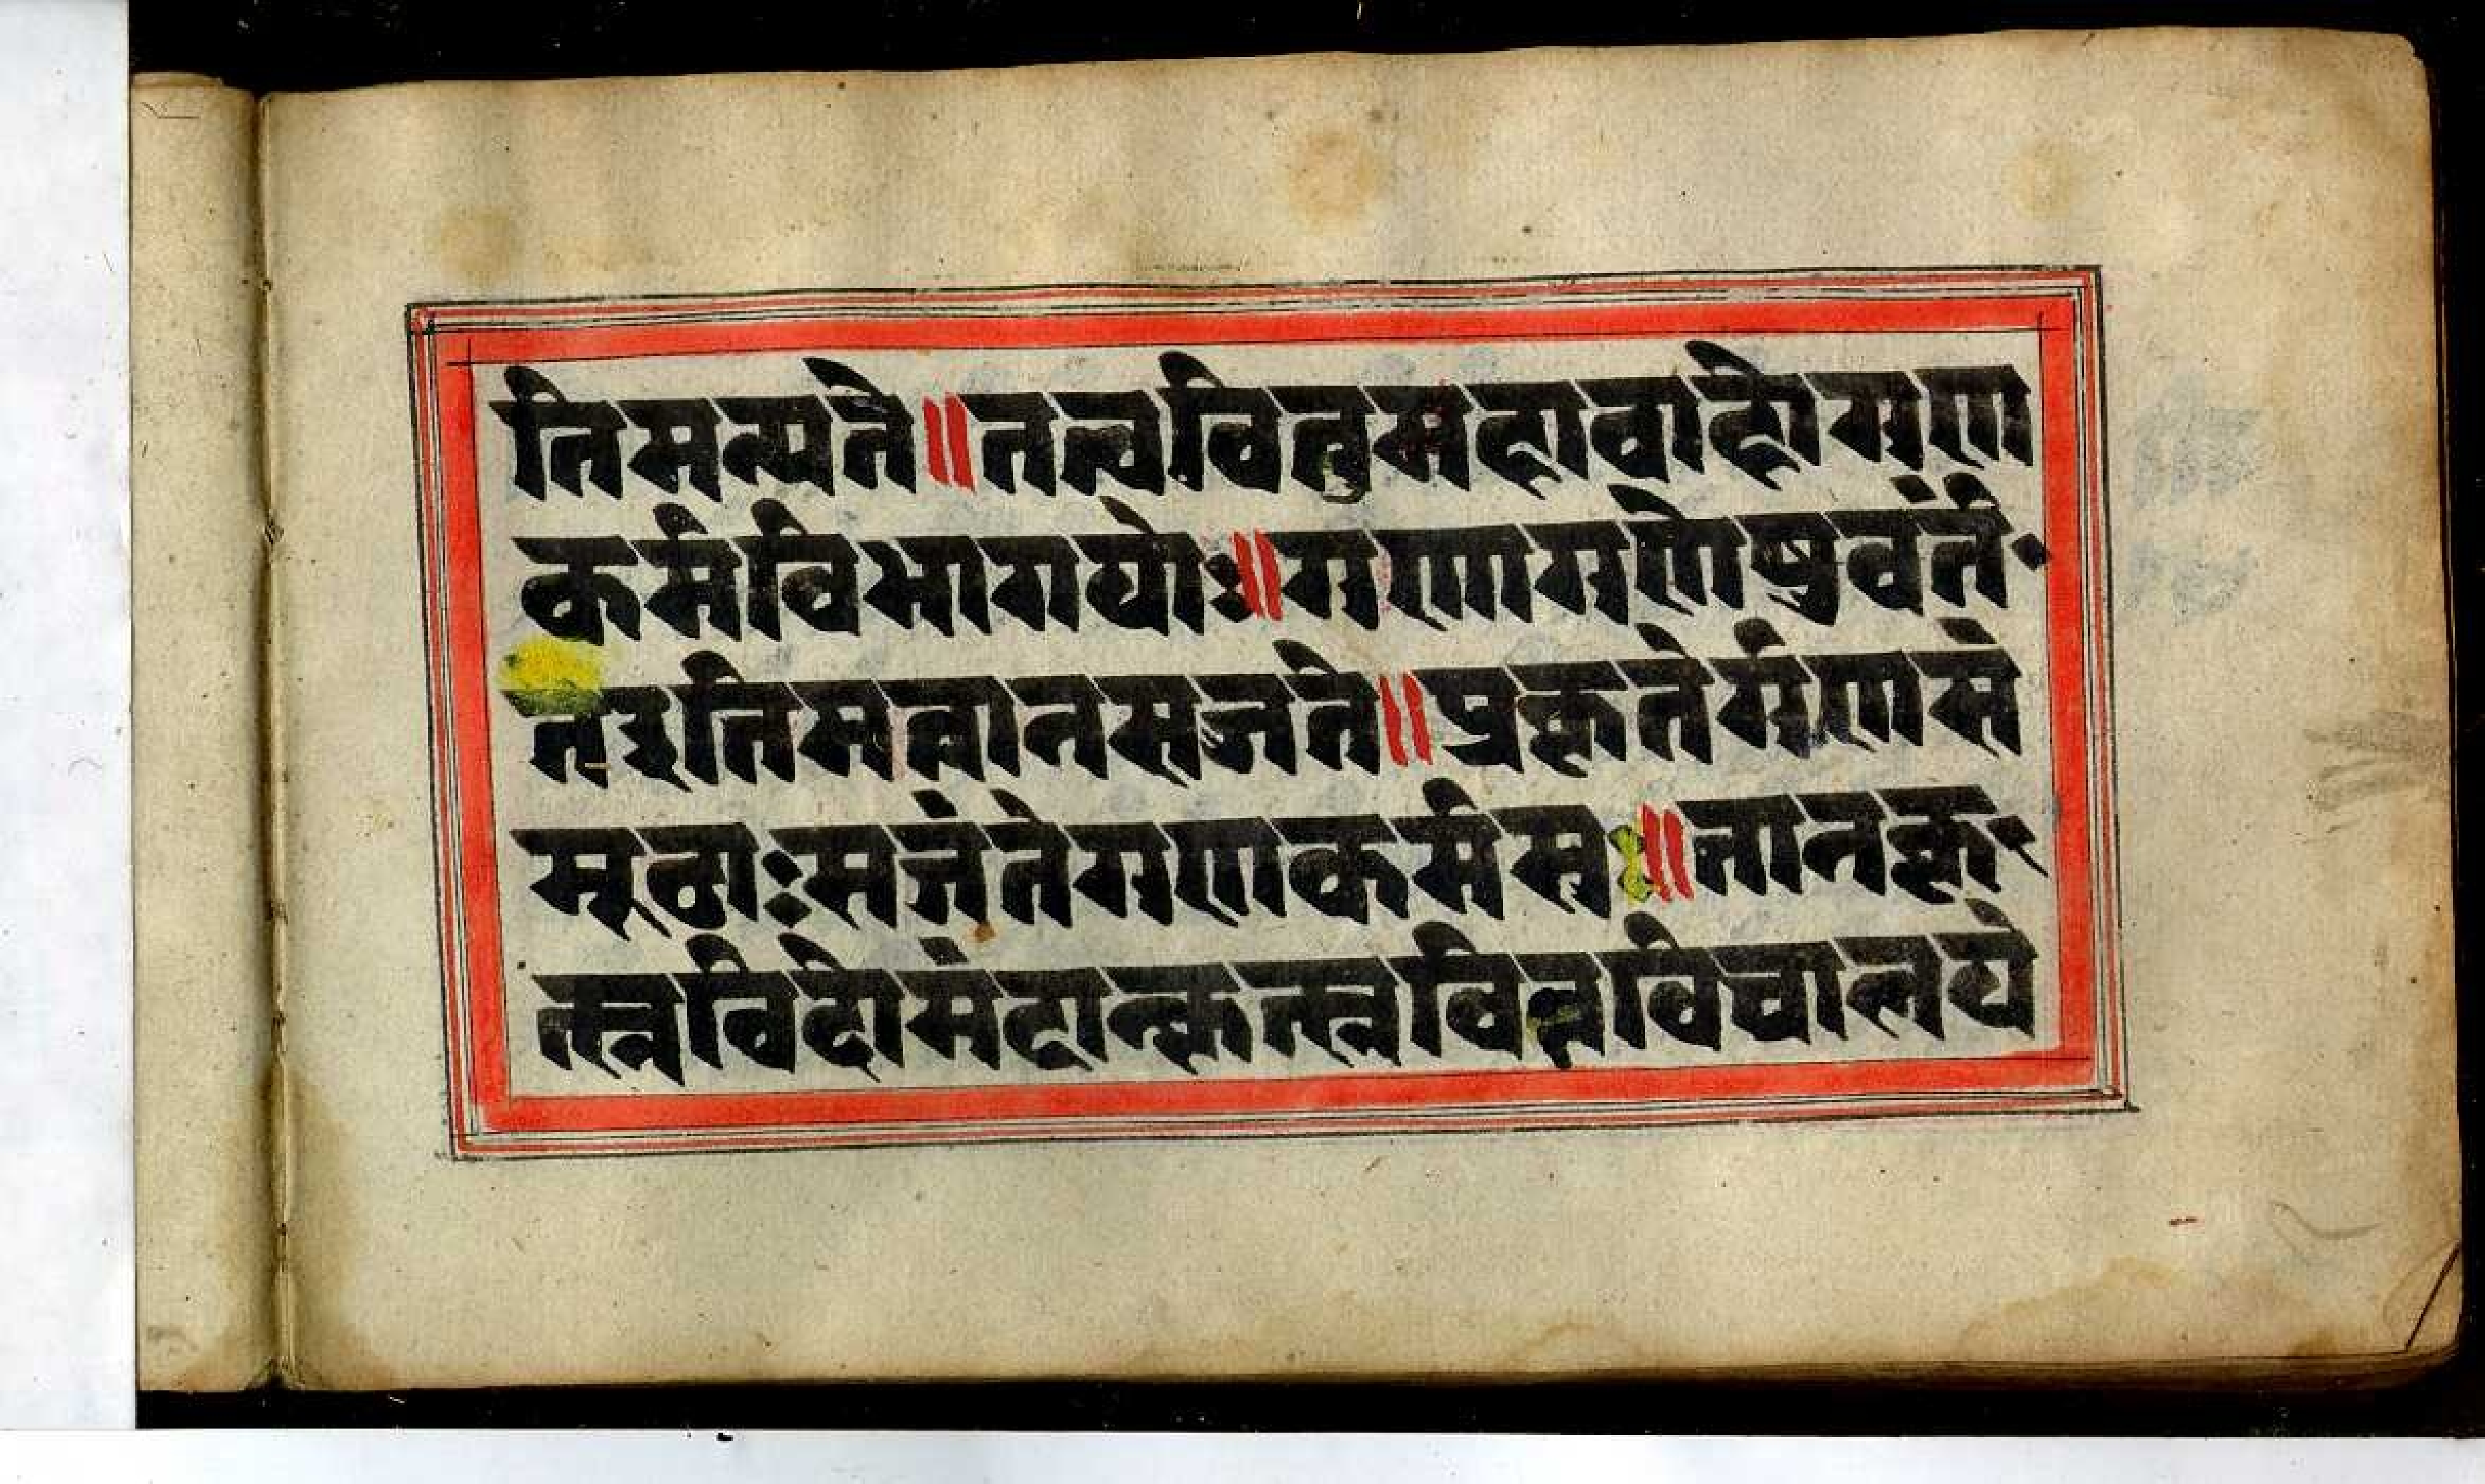 तिमन्यते॥तत्त्ववित्तुमहाबाहोगुण
कर्मविभागयोः॥गुणागुणेषुवर्तं
तइतिमत्वानसज्जते॥प्रकृतेर्गुणसं
मूढाः सज्जंतेगुणकर्मसु॥तानकृ
त्स्नविदोमंदान्कृत्स्नविन्नविचालये